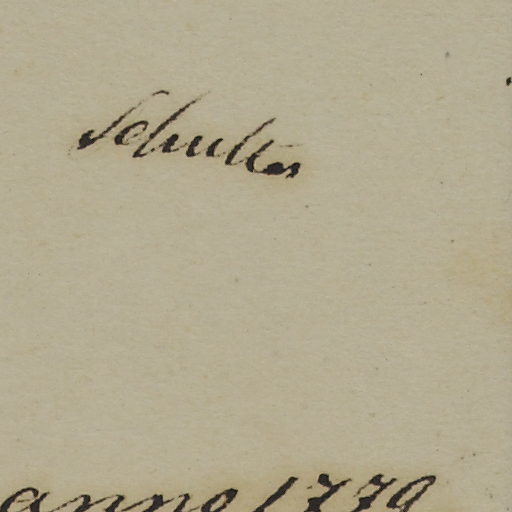 Schultes
anno 1779